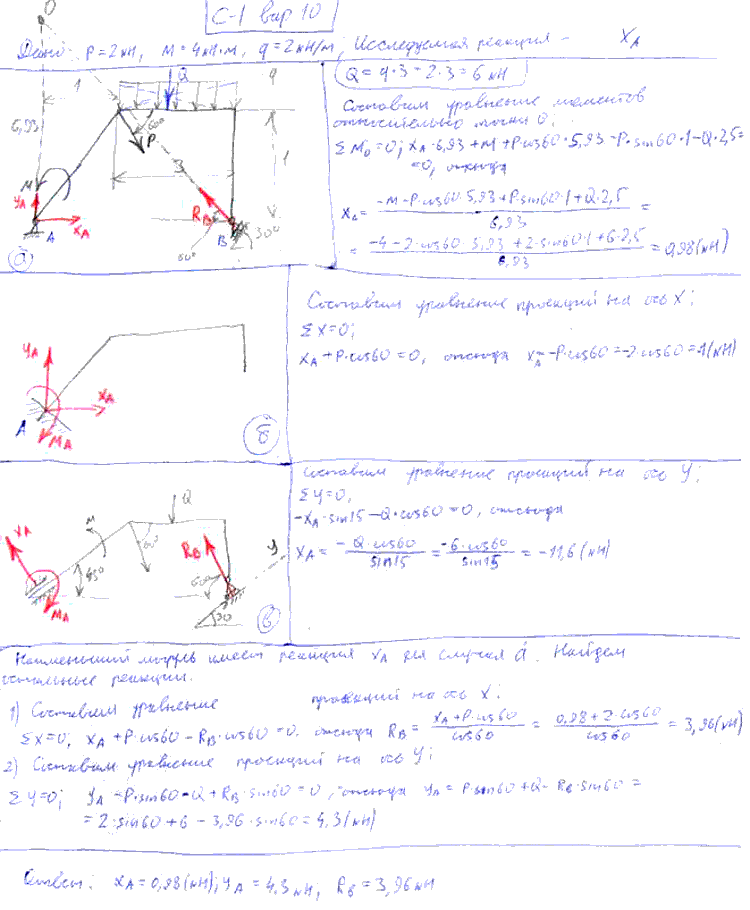 С-1 вар 10
Дано: P=2кН, M=4кН·м, q=2кН/м; Исследуемая реакция – XA
O
Q
q
1
6,93
60°
P
1
3
M
YA
RB
A
XA
B
30°
60°
а
Q=q·3=2·3=6кН
Составим уравнение моментов
относительно точки O;
ΣMO=0; XA·6,93+M+P·cos60·5,93-P·sin60·1-Q·2,5=
=0, откуда
XA= (-M-P·cos60·5,93+P·sin60·1+Q·2,5)/6,93 =
= (-4-2·cos60·5,93+2·sin60·1+6·2,5)/6,93 = 0,98(кН)
YA
XA
A
MA
б
Составим уравнение проекций на ось X;
ΣX=0;
XA+P·cos60=0, откуда XA=-P·cos60=-2·cos60=-1(кН)
XA
M
Q
60°
RB
y
45°
60°
MA
30
в
Составим уравнение проекций на ось Y;
ΣY=0,
-XA·sin15-Q·cos60=0, откуда
XA= -Q·cos60/sin15 = -6·cos60/sin15 = -11,6(кН)
Наименьший модуль имеет реакция XA для случая а. Найдем
остальные реакции.
1) Составим уравнение проекций на ось X:
ΣX=0; XA+P·cos60-RB·cos60=0. откуда RB= (XA+P·cos60)/cos60 = (0,98+2·cos60)/cos60 = 3,96(кН)
2) Составим уравнение проекций на ось Y;
ΣY=0; YA-P·sin60-Q+RB·sin60=0, откуда YA=P·sin60+Q-RB·sin60=
=2·sin60+6-3,96·sin60=4,3(кН)
Ответ: XA=0,98(кН); YA=4,3кН, RB=3,96кН